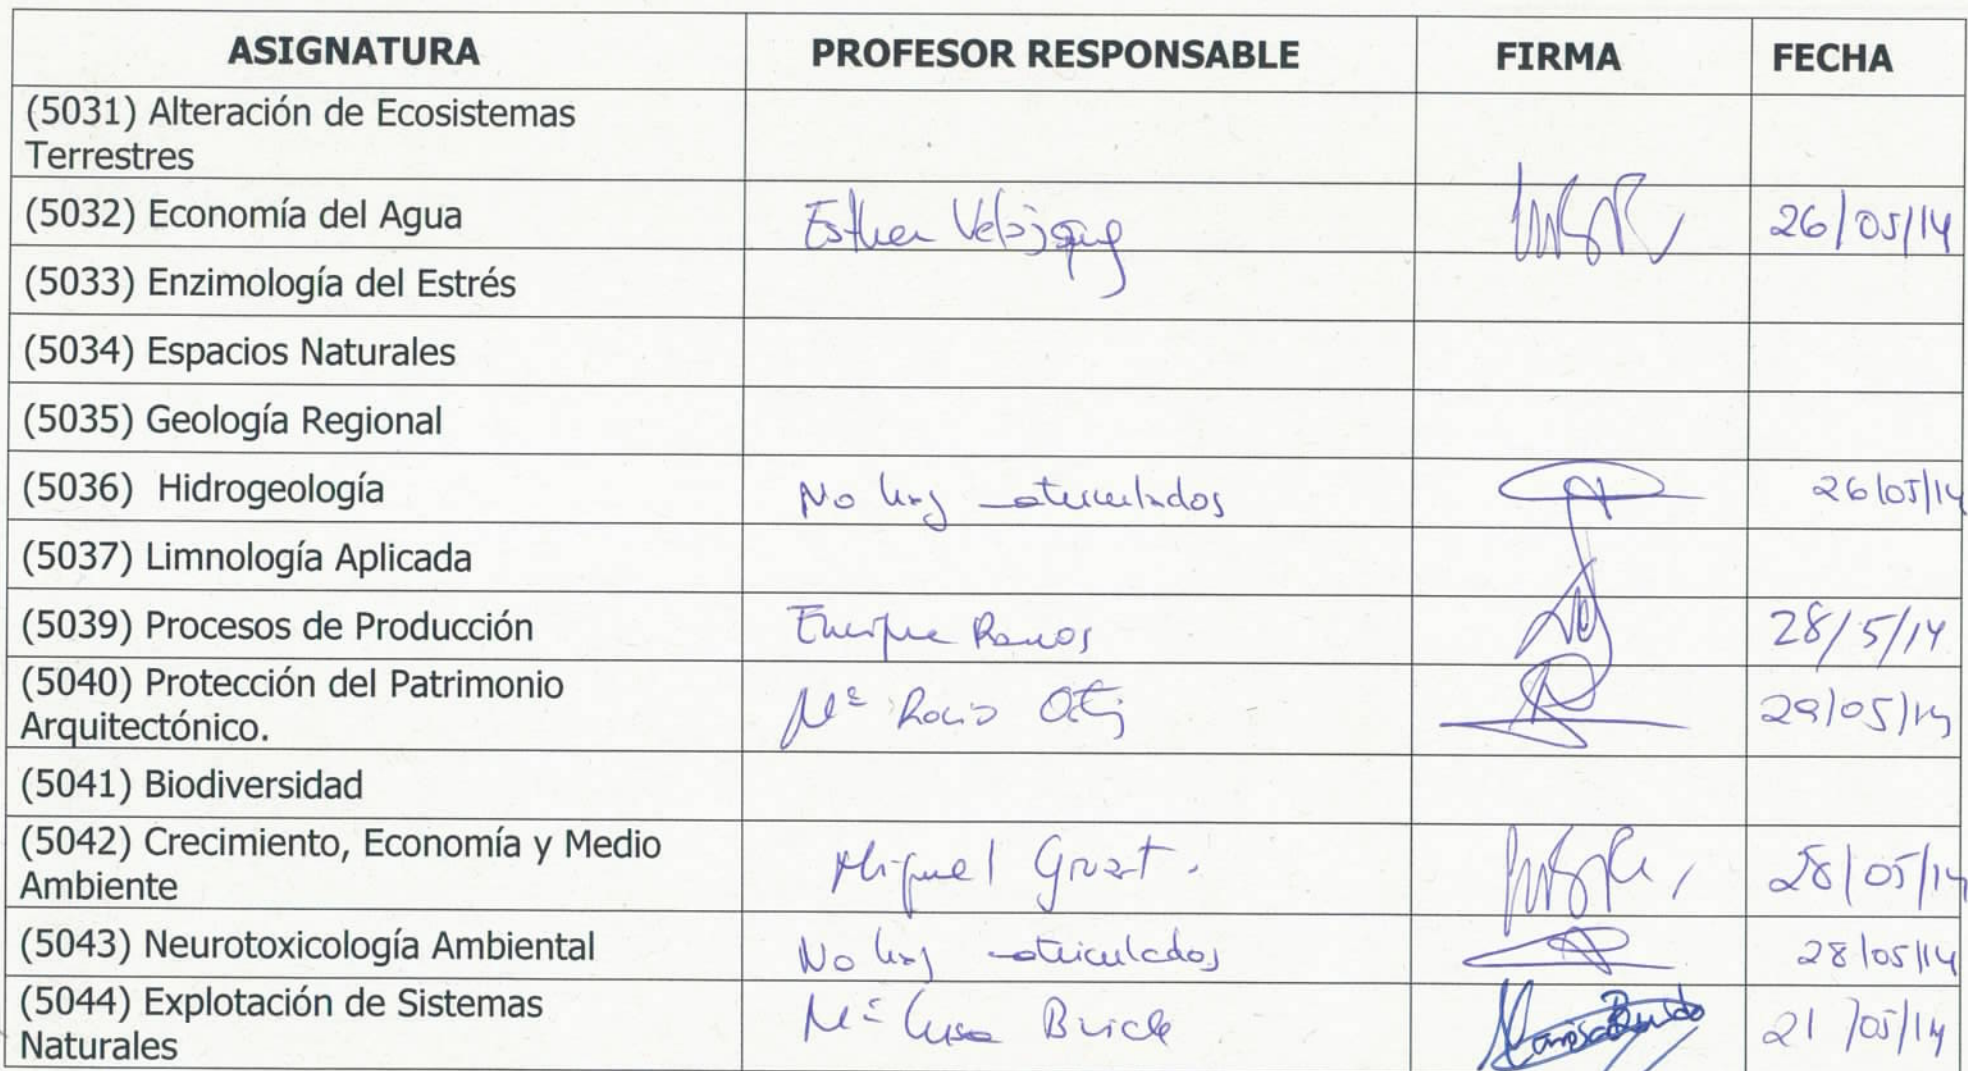 ASIGNATURA PROFESOR RESPONSABLE FIRMA FECHA
(5031) Alteración de Ecosistemas
Terrestres
(5032) Economía del Agua Esther 26/05/14
(5033) Enzimología del Estrés
(5034) Espacios Naturales
(5035) Geología Regional
(5036) Hidrogeología No hay matriculados 26/05/14
(5037) Limnología Aplicada
(5039) Procesos de Producción Enrique Ramos 28/5/14
(5040) Protección del Patrimonio
Arquitectónico. Mª Rocio 29/05/14
(5041) Biodiversidad
(5042) Crecimiento, Economía y Medio
Ambiente Miguel 28/05/14
(5043) Neurotoxicología Ambiental No hay matriculados 28/05/14
(5044) Explotación de Sistemas
Naturales Mª Luisa 21/05/14